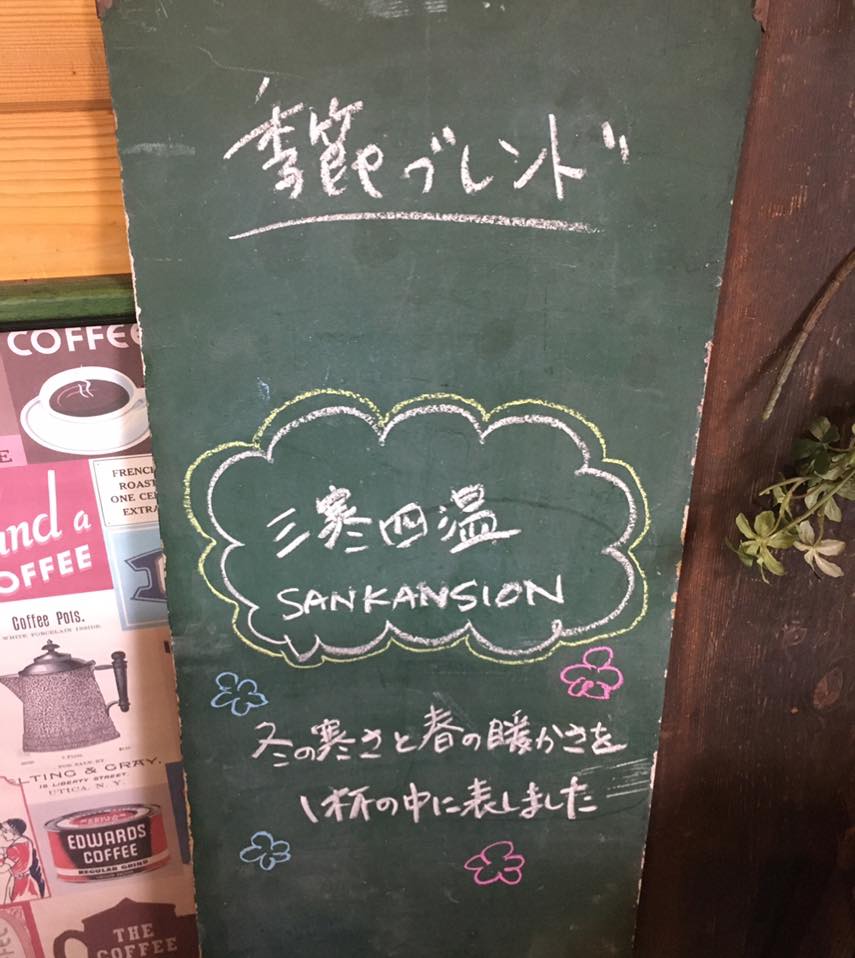 季節のブレンド
三寒四温
SANKANSION
冬の寒さと春の暖かさを
1杯の中に表しました
COFFEE
FRENCH
ROAST
ONE CE
EXTRA
and a
COFFEE
Coffee Pots.
WHITE PORCELAIN INSIDE
FOR SALE BY
LTING & GRAY.
15 LIBERTY STREET
UTICA, N. Y.
EDWARDS
COFFEE
REGULAR GRIND
THE
COFFEE